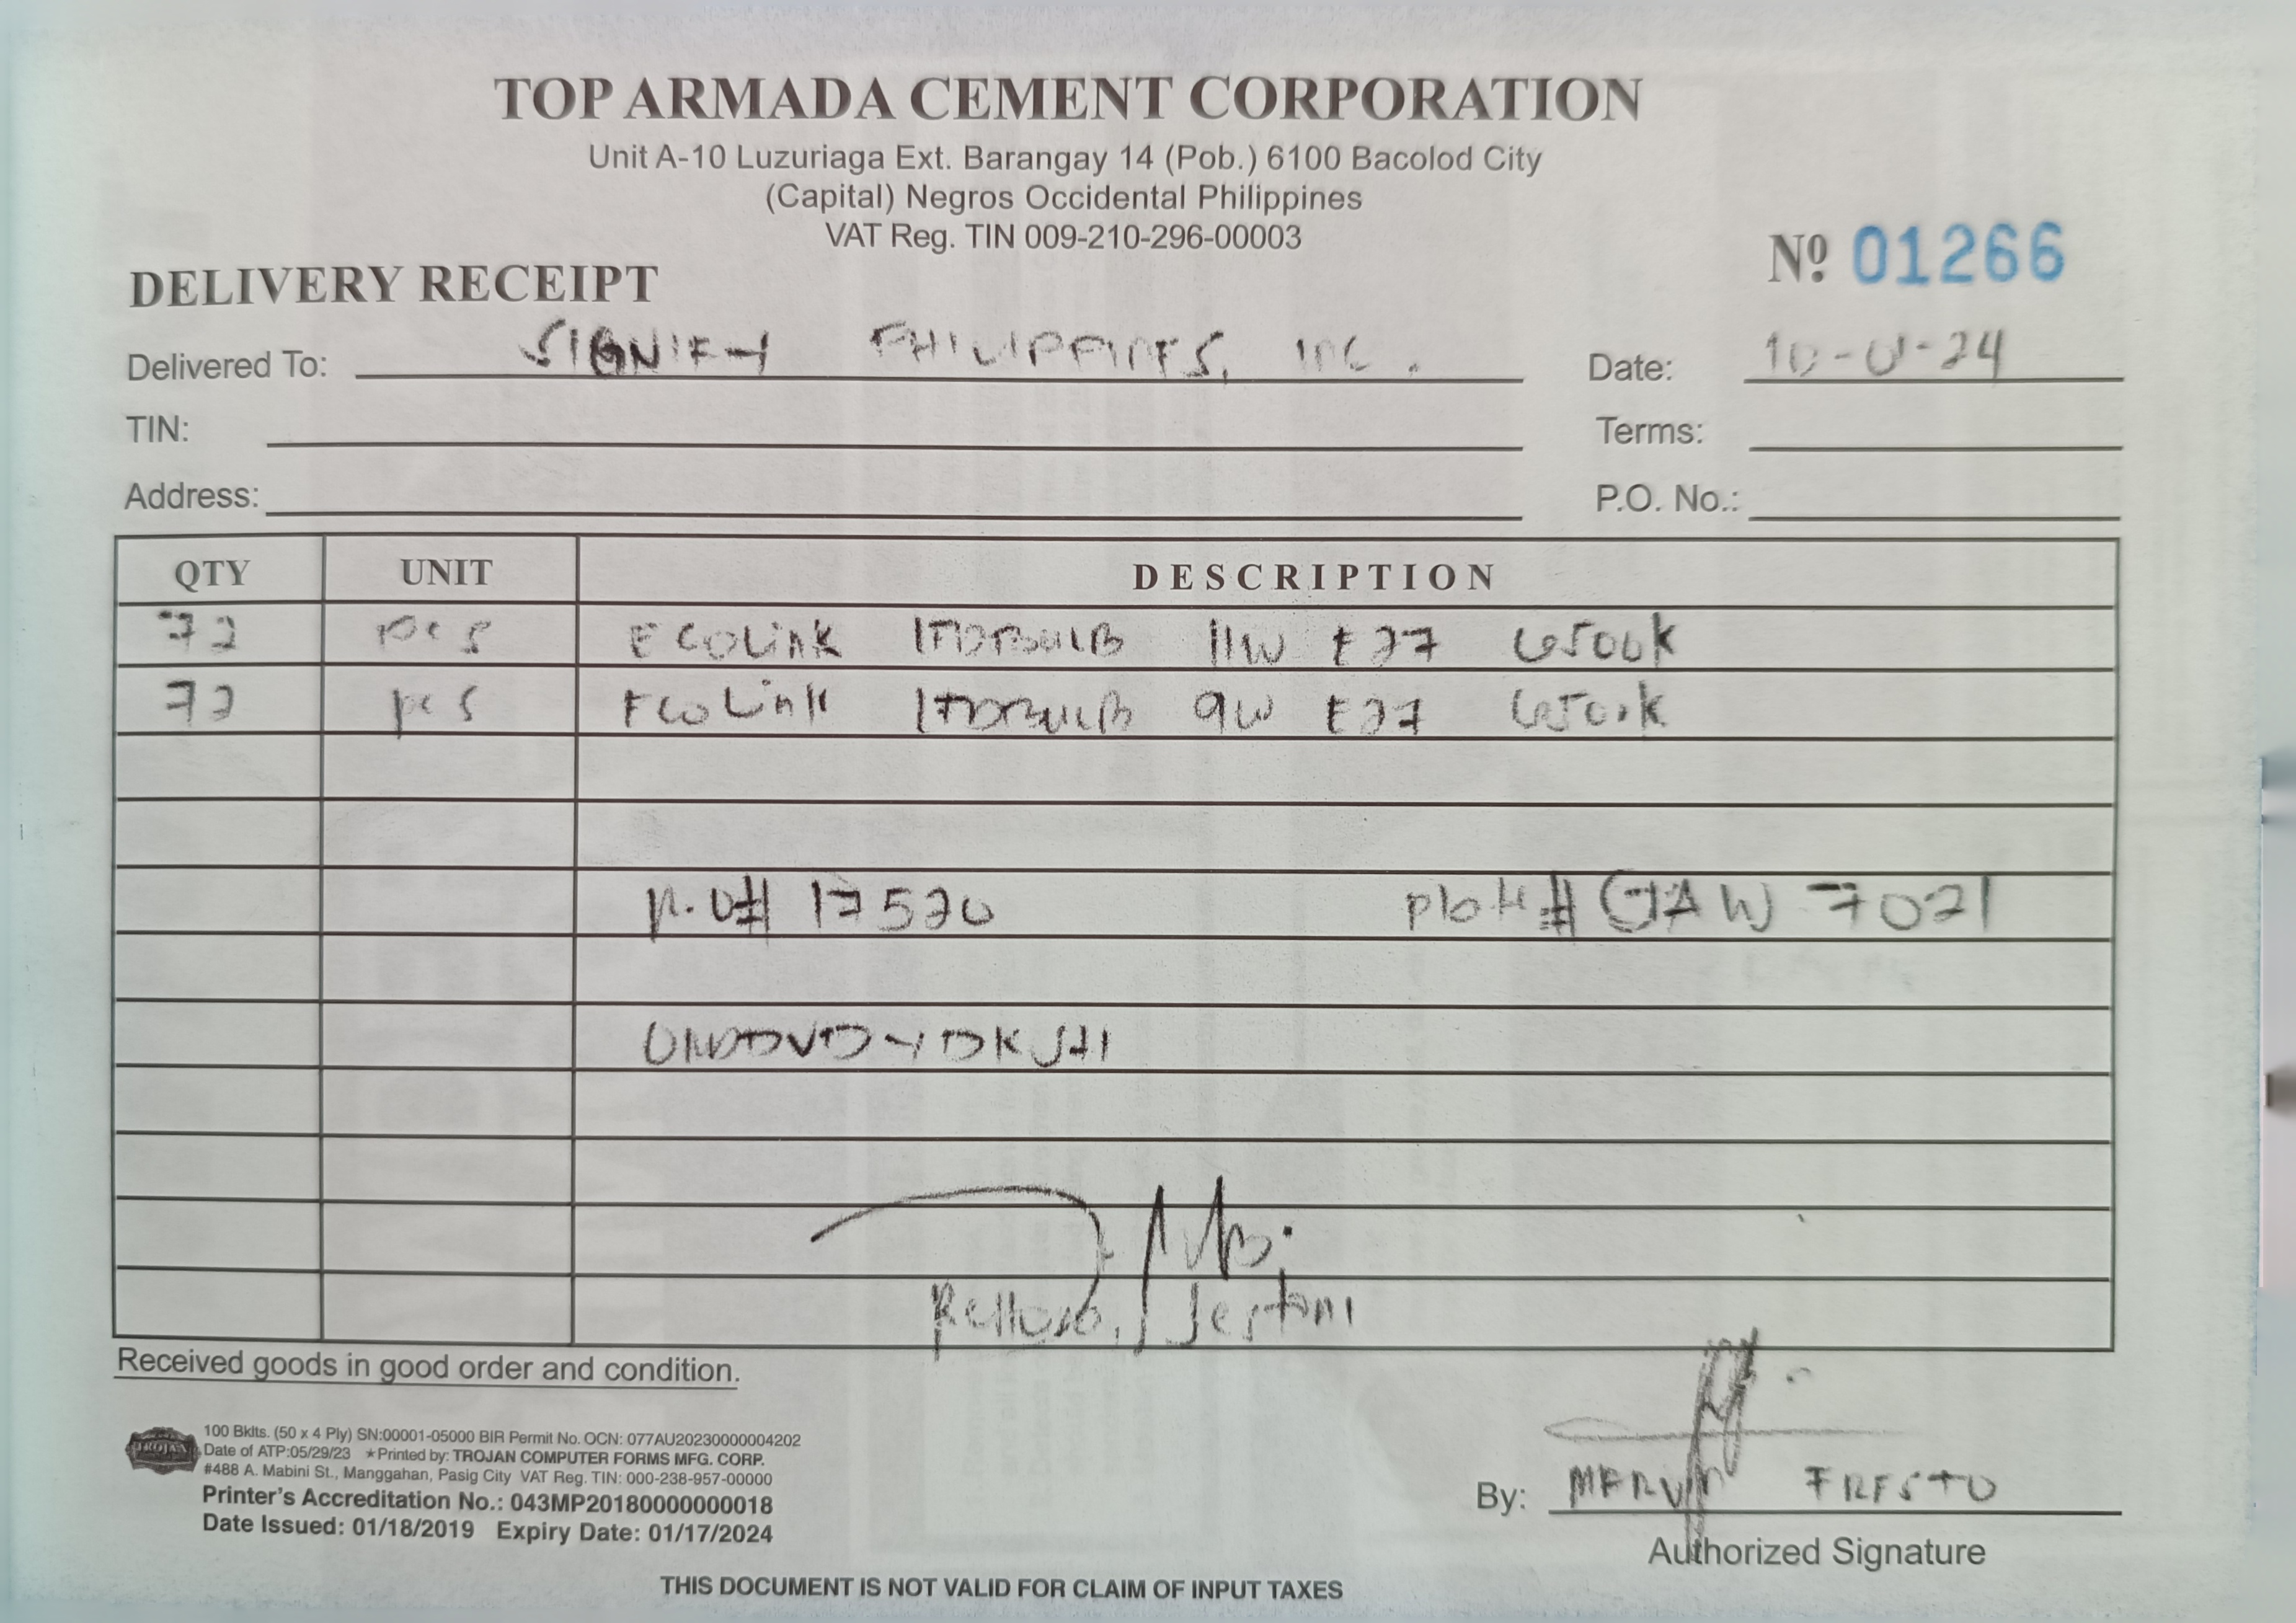 TOP ARMADA CEMENT CORPORATION
Unit A-10 Luzuriaga Ext. Barangay 14 (Pob.) 6100 Bacolod City
(Capital) Negros Occidental Philippines
VAT Reg. TIN 009-210-296-00003
Nº 01266
DELIVERY RECEIPT
Delivered To: SIGNIFY PHILIPPINES, INC.
Date:
TIN:
Terms:
Address:
P.O. No.:
QTY UNIT DESCRIPTION
72 pcs ECOLink 11W E27 6500K
72 pcs ECOLink 9W E27 6500K
P.O# 17520 7021
Jestoni
Received goods in good order and condition.
TROJAN
100 Bklts. (50 x 4 Ply) SN:00001-05000 BIR Permit No. OCN: 077AU20230000004202
Date of ATP:05/29/23 ★Printed by: TROJAN COMPUTER FORMS MFG. CORP.
#488 A. Mabini St., Manggahan, Pasig City VAT Reg. TIN: 000-238-957-00000
Printer's Accreditation No.: 043MP20180000000018
Date Issued: 01/18/2019 Expiry Date: 01/17/2024
By: MERVIN FRESTO
Authorized Signature
THIS DOCUMENT IS NOT VALID FOR CLAIM OF INPUT TAXES